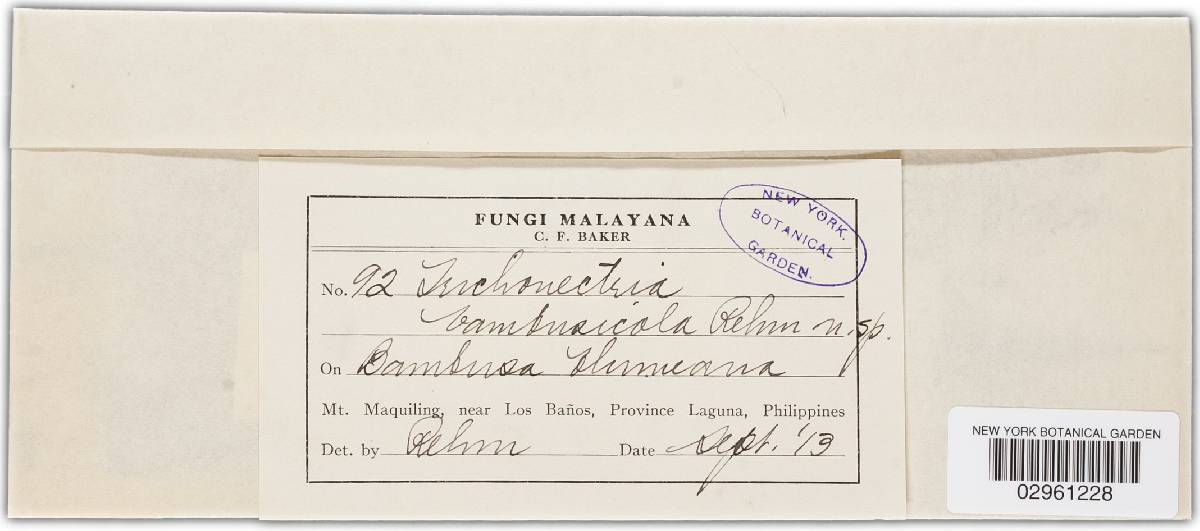 FUNGI MALAYANA
C. F. BAKER
NEW YORK
BOTANICAL
GARDEN.
No. 92 Trichonectria
bambusicola Rehm n. sp.
On Bambusa blumeana
Mt. Maquiling, near Los Baños, Province Laguna, Philippines
Det. by Rehm Date Sept. '13
NEW YORK BOTANICAL GARDEN
02961228